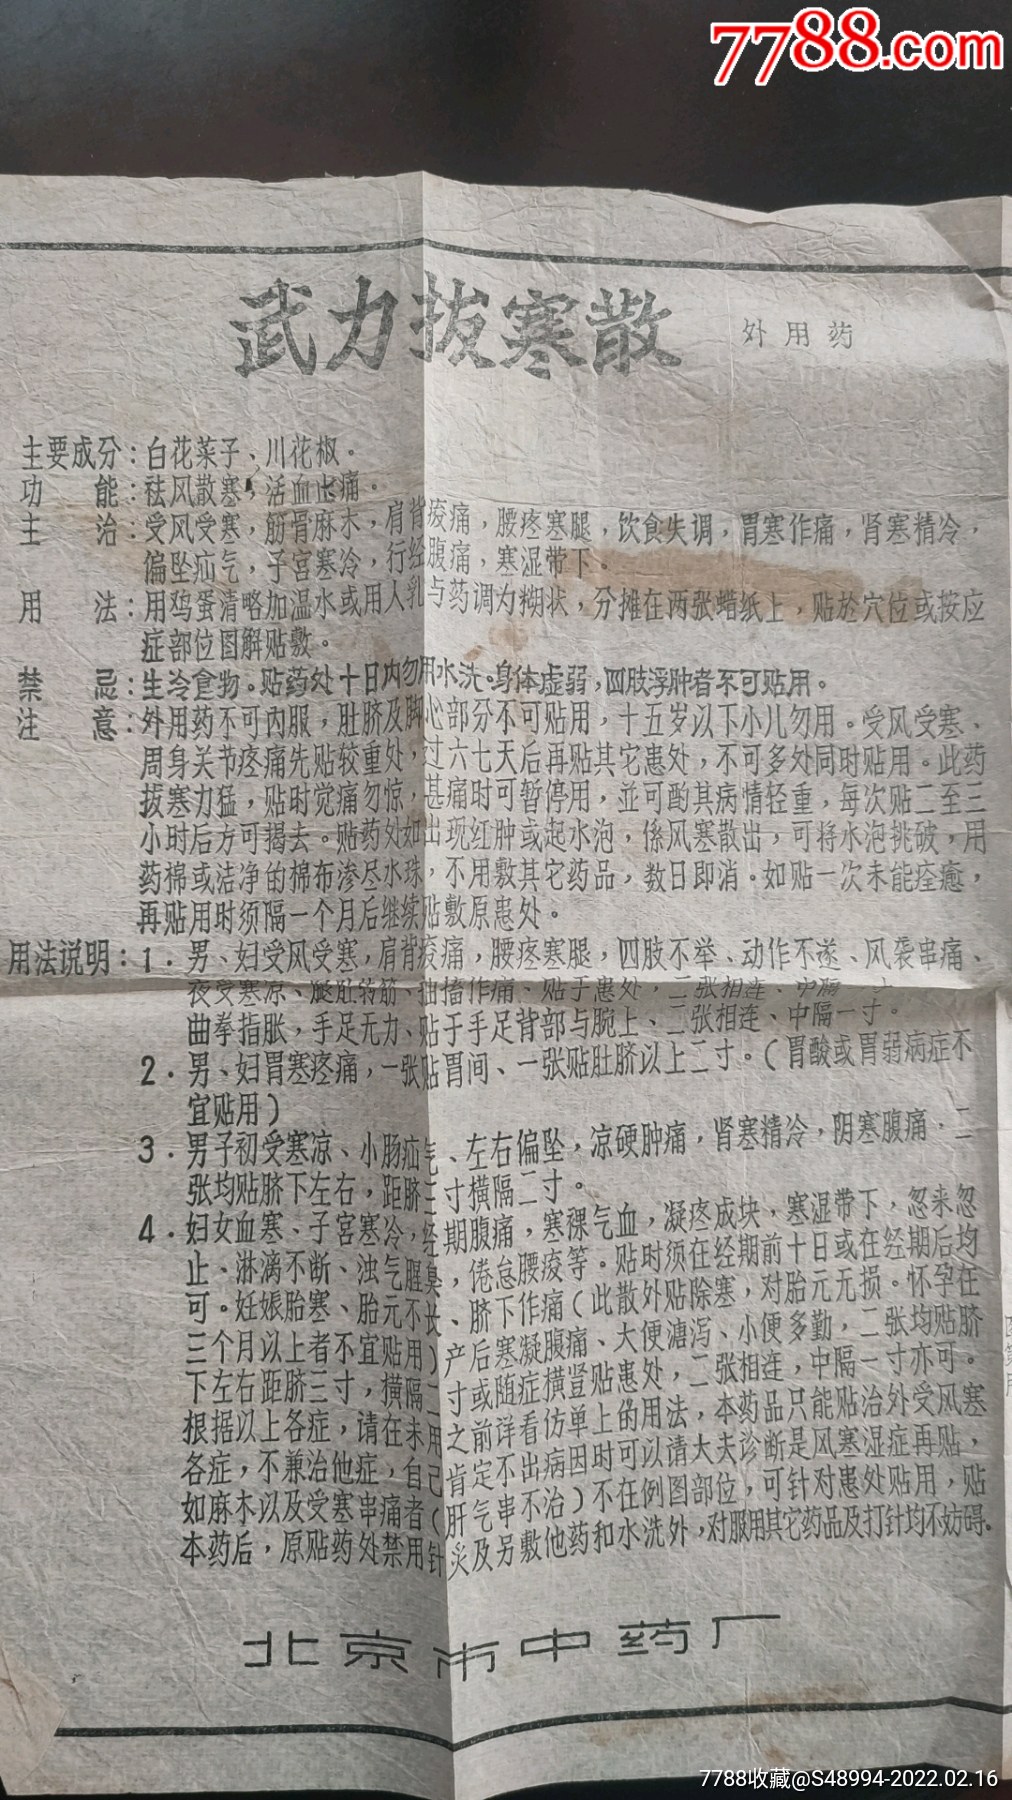 7788.com
武力拔寒散 外用药
主要成分：白花菜子、川花椒。
功能：祛风散寒，活血止痛。
主治：受风受寒，筋骨麻木，肩背痠痛，腰疼寒腿，饮食失调，胃寒作痛，肾寒精冷，
偏坠疝气，子宫寒冷，行经腹痛，寒湿带下。
用法：用鸡蛋清略加温水或用人乳与药调为糊状，分摊在两张蜡纸上，贴於穴位或按应
症部位图解贴敷。
禁忌：生冷食物。贴药处十日内勿用水洗。身体虚弱，四肢浮肿者不可贴用。
注意：外用药不可内服，肚脐及脚心部分不可贴用，十五岁以下小儿勿用。受风受寒、
周身关节疼痛先贴较重处，过六七天后再贴其它患处，不可多处同时贴用。此药
拔寒力猛，贴时觉痛勿惊，甚痛时可暂停用，並可酌其病情轻重，每次贴二至三
小时后方可揭去。贴药处如出现红肿或起水泡，係风寒散出，可将水泡挑破，用
药棉或洁净的棉布渗尽水珠，不用敷其它药品，数日即消。如贴一次未能痊癒，
再贴用时须隔一个月后继续贴敷原患处。
用法说明：1．男、妇受风受寒，肩背痠痛，腰疼寒腿，四肢不举、动作不遂、风袭串痛、
夜受寒凉、腿肚转筋、抽搐作痛、贴于患处，二张相连、中隔一寸。
曲拳指胀，手足无力、贴于手足背部与腕上、二张相连、中隔一寸。
2．男、妇胃寒疼痛，一张贴胃间、一张贴肚脐以上二寸。（胃酸或胃弱病症不
宜贴用）
3．男子初受寒凉、小肠疝气、左右偏坠，凉硬肿痛，肾寒精冷，阴寒腹痛，二
张均贴脐下左右，距脐三寸横隔二寸。
4．妇女血寒、子宫寒冷，经期腹痛，寒裸气血，凝疼成块，寒湿带下，忽来忽
止、淋漓不断、浊气腥臭，倦怠腰痠等。贴时须在经期前十日或在经期后均
可。妊娠胎寒、胎元不长、脐下作痛（此散外贴除寒，对胎元无损。怀孕在
三个月以上者不宜贴用）产后寒凝腹痛、大便溏泻、小便多勤，二张均贴脐
下左右距脐三寸，横隔二寸或随症横竖贴患处，二张相连，中隔一寸亦可。
根据以上各症，请在未用之前详看仿单上的用法，本药品只能贴治外受风寒
各症，不兼治他症，自己肯定不出病因时可以请大夫诊断是风寒湿症再贴，
如麻木以及受寒串痛者（肝气串不治）不在例图部位，可针对患处贴用，贴
本药后，原贴药处禁用针灸及另敷他药和水洗外，对服用其它药品及打针均不妨碍。
北京市中药厂
7788收藏@S48994-2022.02.16